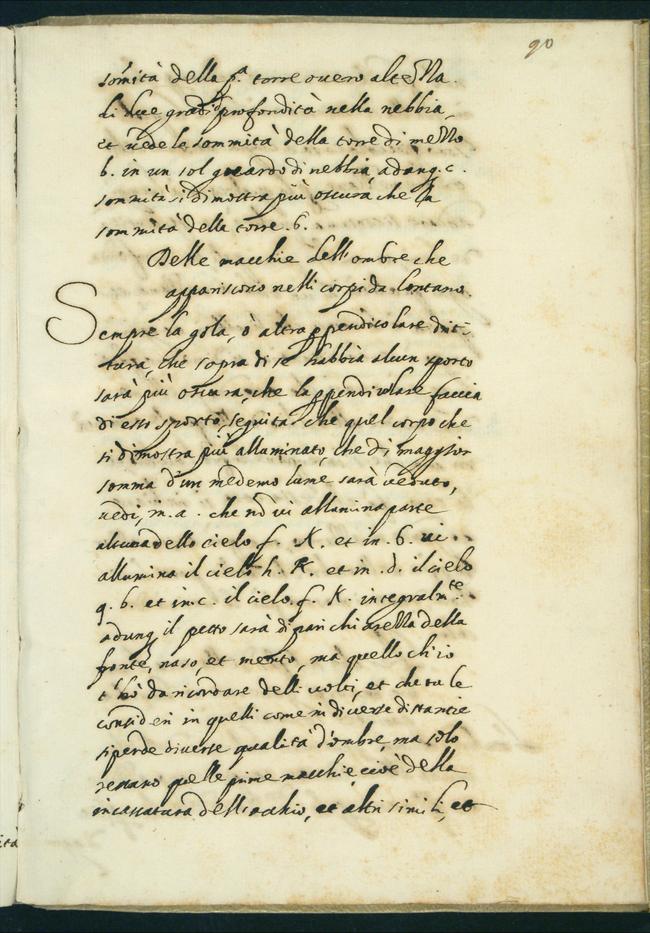 90
somità della p.ª torre ouero altezza
di due gradi di profondità nella nebbia,
et uede la sommità della torre di mezzo
b. in un sol grado di nebbia, adunq. c.
sommità si dimostra più oscura, che la
sommità della torre .b.
Delle macchie dell'ombre che
appariscono nelli corpi da lontano.
Sempre la gola, ò altra ppendicolare dirit-
tura, che sopra di se habbia alcun sporto
sarà più oscura, che la ppendicolare faccia
di esso sporto, seguita che quel corpo che
si dimostra più alluminato, che di maggior
somma d'un medemo lume sarà ueduto,
uedi, in .a. che nō ui allumina parte
alcuna dello cielo f. K. et in .b. ui
allumina il cielo h. K. et in .d. il cielo
g. b. et in .c. il cielo .f. K. integralm.te
adunq, il petto sarà di pari chiarezza della
fronte, naso, et mento, mà quello ch'io
t'hò da ricordare delli uolti, et che tu le
consideri in quelli come in diuerse distantie
si perde diuerse qualità d'ombre, ma solo
restano quelle prime macchie, cioè della
incassatura dell'occhio, et altri simili, et